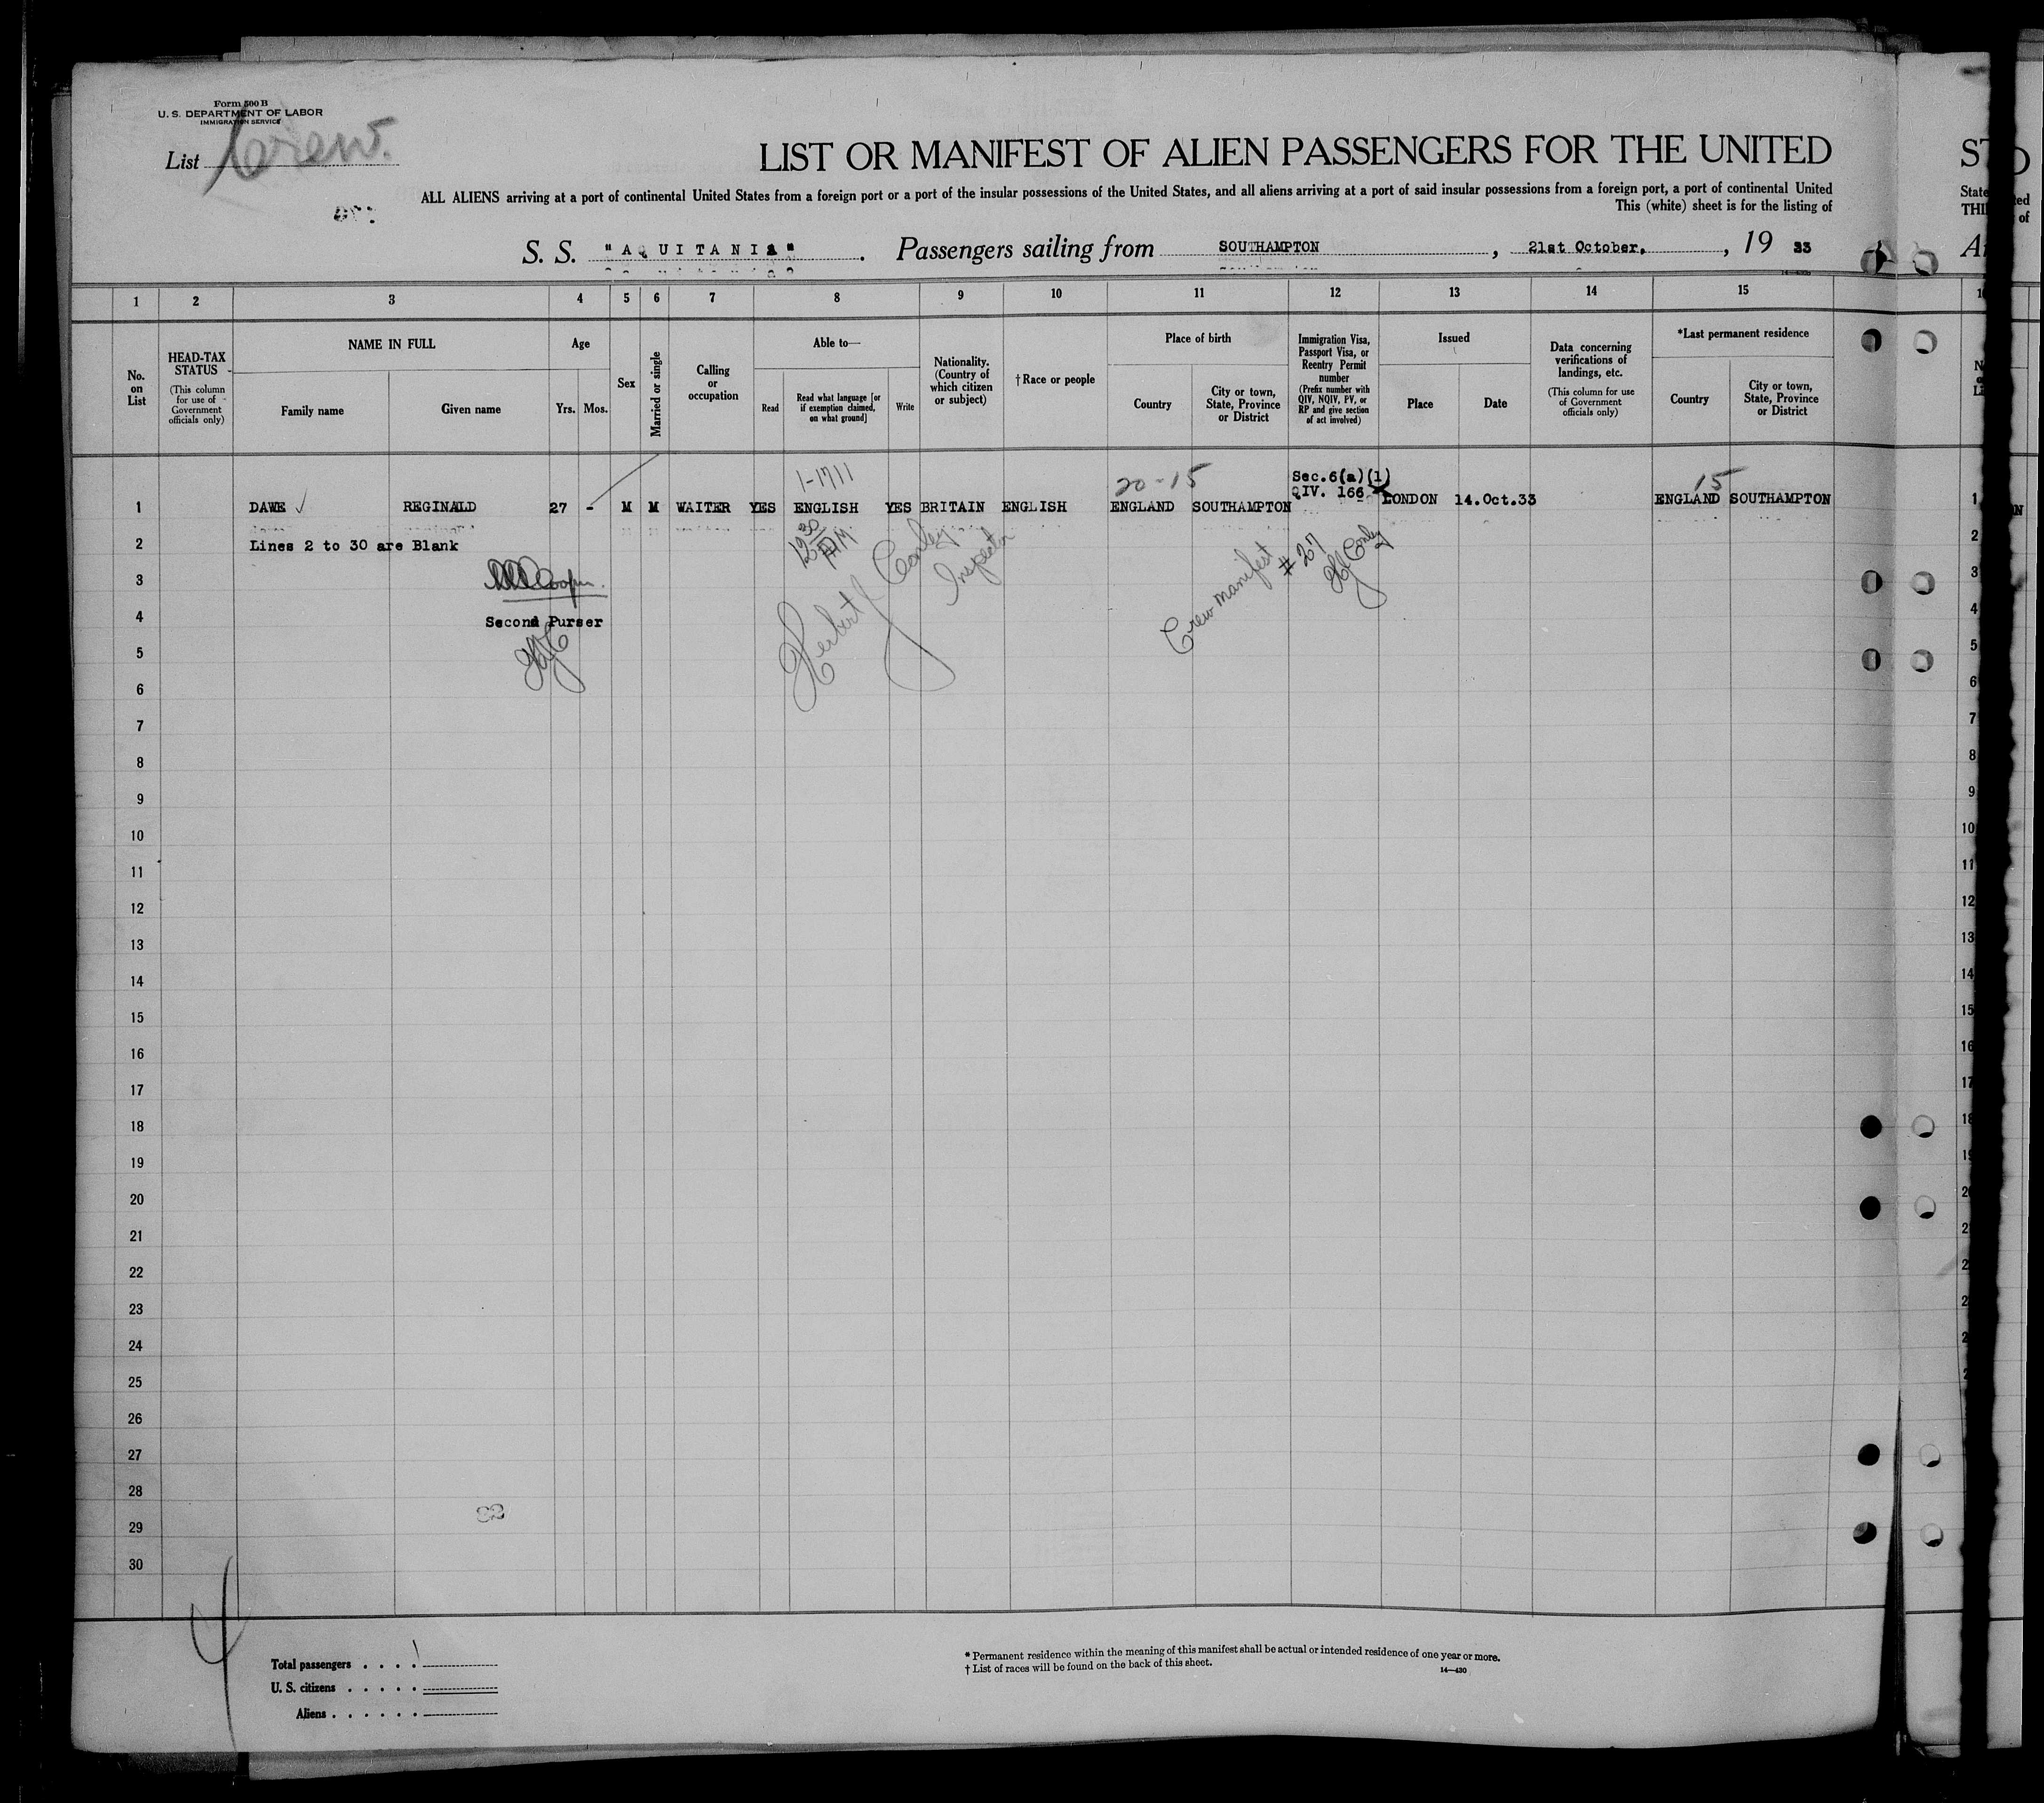 Form 500 B
U. S. DEPARTMENT OF LABOR
IMMIGRATION SERVICE
List Crew.
LIST OR MANIFEST OF ALIEN PASSENGERS FOR THE UNITED
ALL ALIENS arriving at a port of continental United States from a foreign port or a port of the insular possessions of the United States, and all aliens arriving at a port of said insular possessions from a foreign port, a port of continental United
This (white) sheet is for the listing of
S. S. "AQUITANIA". Passengers sailing from SOUTHAMPTON, 21st October, , 19 33
1 2 3 4 5 6 7 8 9 10 11 12 13 14 15
No. on List
HEAD-TAX STATUS
(This column for use of Government officials only)
NAME IN FULL
Family name Given name
Age
Yrs. Mos.
Sex
Married or single
Calling or occupation
Able to—
Read
Read what language [or if exemption claimed, on what ground]
Write
Nationality. (Country of which citizen or subject)
† Race or people
Place of birth
Country City or town, State, Province or District
Immigration Visa, Passport Visa, or Reentry Permit number
(Prefix number with QIV, NQIV, PV, or RP and give section of act involved)
Issued
Place Date
Data concerning verifications of landings, etc.
(This column for use of Government officials only)
*Last permanent residence
Country City or town, State, Province or District
1-1711 20-15 Sec.6(a)(1) 15
1 DAWE REGINALD 27 - M M WAITER YES ENGLISH YES BRITAIN ENGLISH ENGLAND SOUTHAMPTON QIV. 166 LONDON 14.Oct.33 ENGLAND SOUTHAMPTON 1
2 Lines 2 to 30 are Blank 2
12 30 AM.
Cooper.
Second Purser
Herbert Conley
Inspector
Crew manifest #27
Conley
3 3
4 4
5 5
6 6
7 7
8 8
9 9
10 10
11 11
12 12
13 13
14 14
15 15
16 16
17 17
18 18
19
20
21
22
23
24
25
26
27
28
29
30
82
Total passengers . . . . 1
U. S. citizens . . . . .
Aliens . . . . . .
* Permanent residence within the meaning of this manifest shall be actual or intended residence of one year or more.
† List of races will be found on the back of this sheet.
14—430